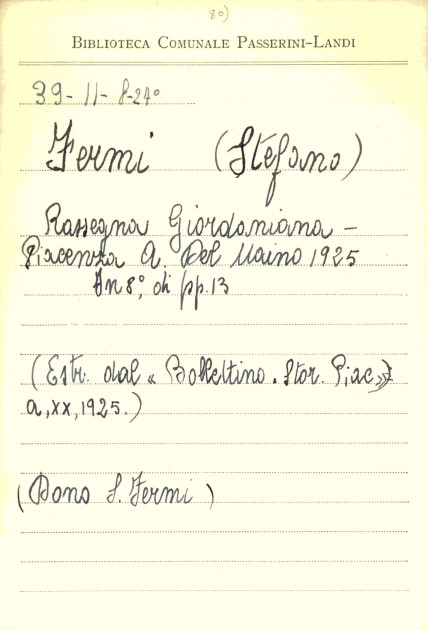 80)
BIBLIOTECA COMUNALE PASSERINI-LANDI
39-11-8-24°
Fermi (Stefano)
Rassegna Giordaniana -
Piacenza A. Del Maino 1925
In 8°, di pp. 13
(Estr. dal « Bollettino. Stor. Piac »)
a, xx, 1925.)
(Dono S. Fermi)